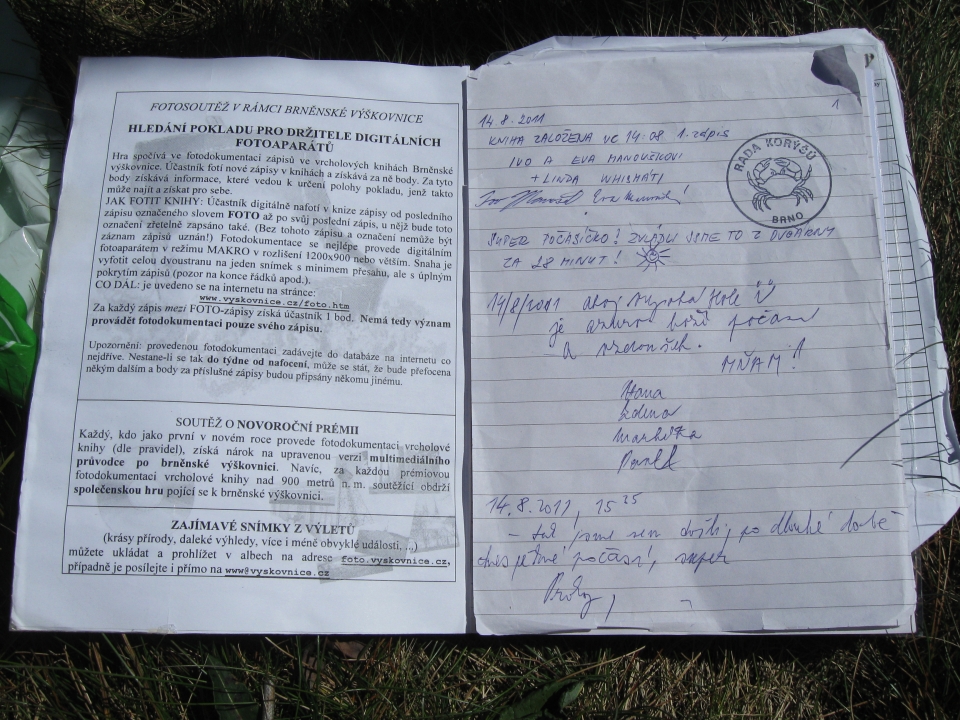 FOTOSOUTĚŽ V RÁMCI BRNĚNSKÉ VÝŠKOVNICE
HLEDÁNÍ POKLADU PRO DRŽITELE DIGITÁLNÍCH
FOTOAPARÁTŮ
Hra spočívá ve fotodokumentaci zápisů ve vrcholových knihách Brněnské
výškovnice. Účastník fotí nové zápisy v knihách a získává za ně body. Za tyto
body získává informace, které vedou k určení polohy pokladu, jenž takto
může najít a získat pro sebe.
JAK FOTIT KNIHY: Účastník digitálně nafotí v knize zápisy od posledního
zápisu označeného slovem FOTO až po svůj poslední zápis, u nějž bude toto
označení zřetelně zapsáno také. (Bez tohoto zápisu a označení nemůže být
záznam zápisů uznán!) Fotodokumentace se nejlépe provede digitálním
fotoaparátem v režimu MAKRO v rozlišení 1200x900 nebo větším. Snaha je
vyfotit celou dvoustranu na jeden snímek s minimem přesahu, ale s úplným
pokrytím zápisů (pozor na konce řádků apod.).
CO DÁL: je uvedeno se na internetu na stránce:
www.vyskovnice.cz/foto.htm
Za každý zápis mezi FOTO-zápisy získá účastník 1 bod. Nemá tedy význam
provádět fotodokumentaci pouze svého zápisu.
Upozornění: provedenou fotodokumentaci zadávejte do databáze na internetu co
nejdříve. Nestane-li se tak do týdne od nafocení, může se stát, že bude přefocena
někým dalším a body za příslušné zápisy budou připsány někomu jinému.
SOUTĚŽ O NOVOROČNÍ PRÉMII
Každý, kdo jako první v novém roce provede fotodokumentaci vrcholové
knihy (dle pravidel), získá nárok na upravenou verzi multimediálního
průvodce po brněnské výškovnici. Navíc, za každou prémiovou
fotodokumentaci vrcholové knihy nad 900 metrů n. m. soutěžící obdrží
společenskou hru pojící se k brněnské výškovnici.
ZAJÍMAVÉ SNÍMKY Z VÝLETŮ
(krásy přírody, daleké výhledy, více i méně obvyklé události, ...)
můžete ukládat a prohlížet v albech na adrese foto.vyskovnice.cz,
případně je posílejte i přímo na www@vyskovnice.cz
1
14.8.2011
KNIHA ZALOŽENA VE 14:08 1. zápis
IVO A EVA MANOUŠKOVI
+ LINDA
RADA KORÝŠŮ
BRNO
SUPER POČASÍČKO! ZVLÁDLI JSME TO Z DVOŘÁRNY
ZA 28 MINUT!
14/8/2011 ahoj Hole
je boží počasí
a
MŇAM!
Hana
Zdena
Markétka
Pavel
14.8.2011, 15 25
– tak jsme sem došli, po dlouhé době
pěkné počasí, super